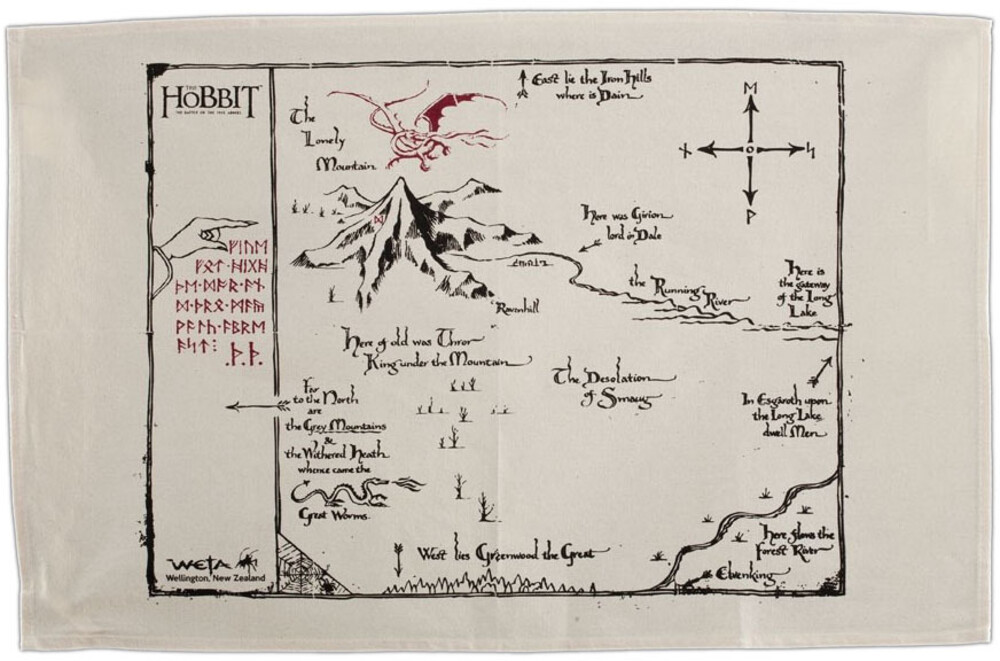 THE
HOBBIT
THE BATTLE OF THE FIVE ARMIES
East lie the Iron Hills
where is Dain
The
Lonely
Mountain
ᛖ
ᚾ
ᛋ
ᚹ
Here was Girion
lord in Dale
the Running River
Here is
the gateway
of the Long
Lake
Ravenhill
ᚠᛁᚢᛖ
ᚦ.ᚦ.
Here of old was Thror
King under the Mountain
The Desolation
of Smaug
Far
to the North
are
the Grey Mountains
&
the Withered Heath
whence came the
Great Worms
In Esgaroth upon
the Long Lake
dwell Men
Here flows the
Forest River
Elvenking
West lies Greenwood the Great
WETA
Wellington, New Zealand